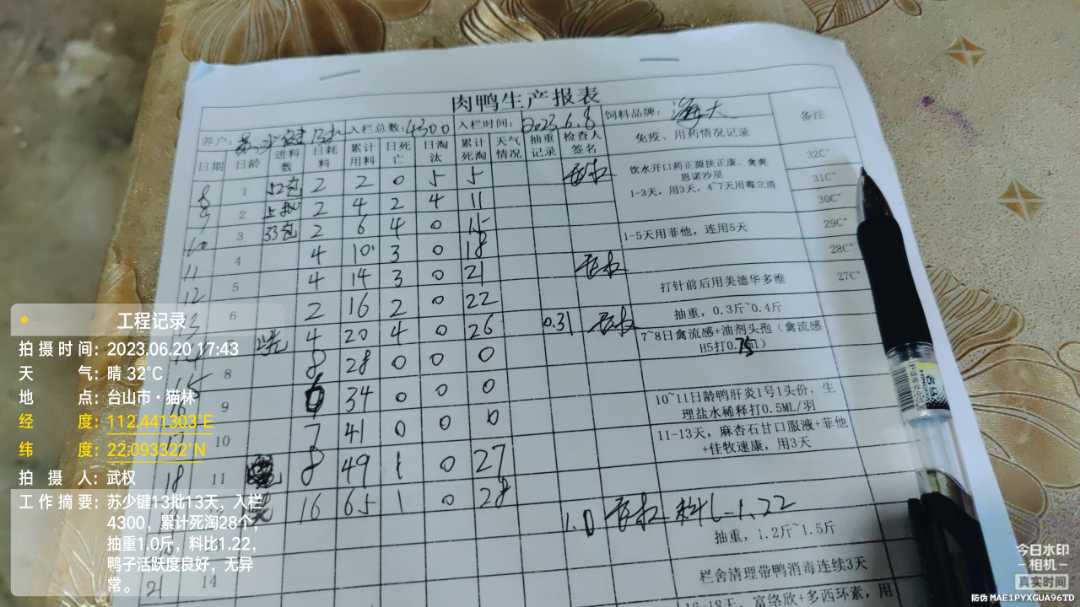 肉鸭生产报表
养户: 入栏总数:4300 入栏时间:2023.6.8 饲料品牌:海大 备注
日期 日龄 进料数 日耗料 累计用料 日死亡 日淘汰 累计死淘 天气情况 抽重记录 检查人签名 免疫、用药情况记录
8 1 52包 2 2 0 5 5 武权
9 2 2 4 2 4 11
10 3 53包 2 6 4 0 15
11 4 4 10 3 0 18
12 5 4 14 3 0 21 武权
6 2 16 2 0 22
4 20 4 0 26 0.31 武权
8 8 28 0 0 0
9 6 34 0 0 0
10 7 41 0 0 0
18 11 8 49 1 0 27
16 65 1 0 28
1.0 武权 料比1.22
21 14
饮水开口药正腹扶正康、禽爽
恩诺沙星
1-3天,用3天,4~7天用霉立清
1-5天用菲他,连用5天
打针前后用美德华多维
抽重,0.3斤~0.4斤
7~8日禽流感+油剂头孢(禽流感
H5打0.75
10~11日龄鸭肝炎1号1头份,生
理盐水稀释打0.5ML/羽
11-13天,麻杏石甘口服液+菲他
+佳牧速康,用3天
抽重,1.2斤~1.5斤
栏舍清理带鸭消毒连续3天
16-18天,富络欣+多西环素,用
32C°
31C°
30C°
29C°
28C°
27C°
工程记录
拍摄时间:2023.06.20 17:43
天气:晴 32℃
地点:台山市·猫林
经度:112.441303°E
纬度:22.093322°N
拍摄人:武权
工作摘要:苏少键13批13天,入栏
4300,累计死淘28个,
抽重1.0斤,料比1.22,
鸭子活跃度良好,无异
常。
今日水印
-相机-
真实时间
防伪 MAE1PYXGUA96TD